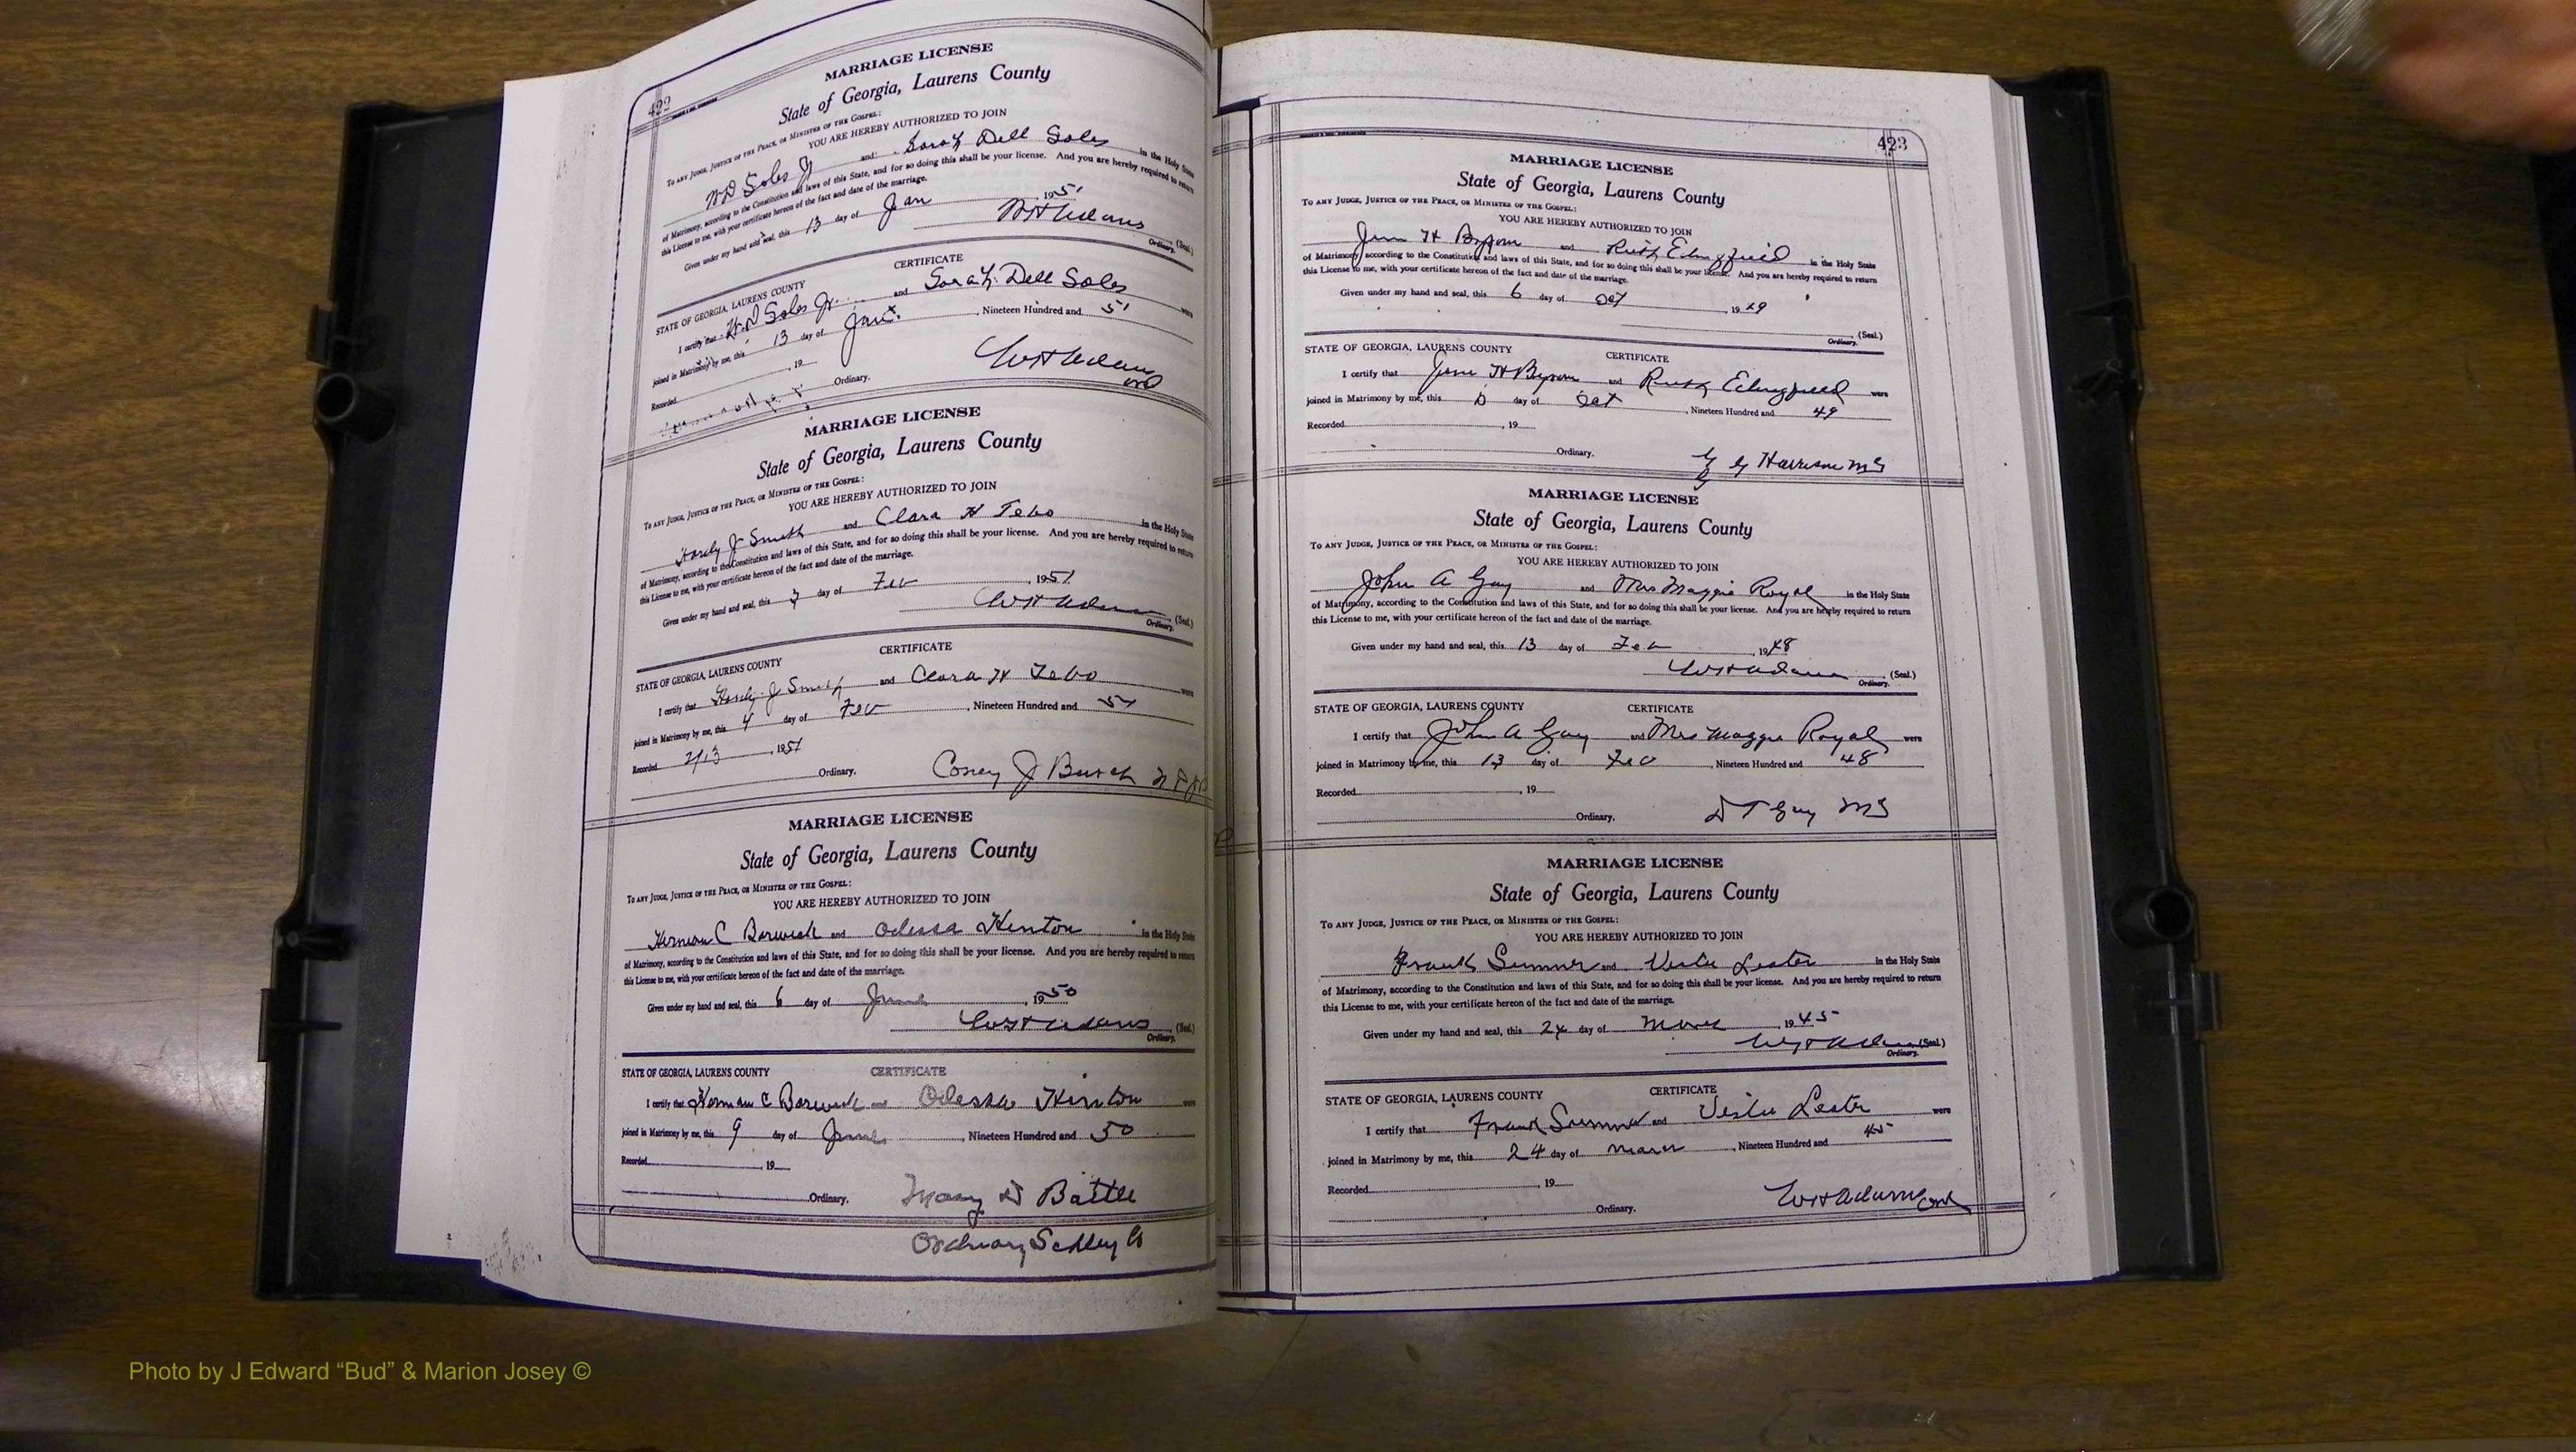 422
MARRIAGE LICENSE
State of Georgia, Laurens County
TO ANY JUDGE, JUSTICE OF THE PEACE, OR MINISTER OF THE GOSPEL:
YOU ARE HEREBY AUTHORIZED TO JOIN
W D Soles Jr and Sarah Dell Soles in the Holy State
of Matrimony, according to the Constitution and laws of this State, and for so doing this shall be your license. And you are hereby required to return
this License to me, with your certificate hereon of the fact and date of the marriage.
Given under my hand and seal, this 13 day of Jan 1951
W H Adams (Seal.)
Ordinary.
CERTIFICATE
STATE OF GEORGIA, LAURENS COUNTY
I certify that W.D Soles Jr. and Sarah Dell Soles were
joined in Matrimony by me, this 13 day of Jan. , Nineteen Hundred and 51
Recorded , 19
W H Adams
Ordinary. Ord
MARRIAGE LICENSE
State of Georgia, Laurens County
TO ANY JUDGE, JUSTICE OF THE PEACE, OR MINISTER OF THE GOSPEL:
YOU ARE HEREBY AUTHORIZED TO JOIN
Hardy J Smith and Clara H Tebo in the Holy State
of Matrimony, according to the Constitution and laws of this State, and for so doing this shall be your license. And you are hereby required to return
this License to me, with your certificate hereon of the fact and date of the marriage.
Given under my hand and seal, this 3 day of Feb , 1951
W H Adams (Seal.)
Ordinary.
CERTIFICATE
STATE OF GEORGIA, LAURENS COUNTY
I certify that Hardy J Smith and Clara H Tebo were
joined in Matrimony by me, this 4 day of Feb , Nineteen Hundred and 51
Recorded 2/13 , 1951
Ordinary. Coney J Burch
MARRIAGE LICENSE
State of Georgia, Laurens County
TO ANY JUDGE, JUSTICE OF THE PEACE, OR MINISTER OF THE GOSPEL:
YOU ARE HEREBY AUTHORIZED TO JOIN
Herman C Barwick and Odessa Hinton in the Holy State
of Matrimony, according to the Constitution and laws of this State, and for so doing this shall be your license. And you are hereby required to return
this License to me, with your certificate hereon of the fact and date of the marriage.
Given under my hand and seal, this 6 day of June , 1950
W H Adams (Seal.)
Ordinary.
STATE OF GEORGIA, LAURENS COUNTY CERTIFICATE
I certify that Herman C Barwick and Odessa Hinton were
joined in Matrimony by me, this 9 day of June , Nineteen Hundred and 50
Recorded , 19
Ordinary. Mary D Battle
Ordinary Schley Co
423
MARRIAGE LICENSE
State of Georgia, Laurens County
TO ANY JUDGE, JUSTICE OF THE PEACE, OR MINISTER OF THE GOSPEL:
YOU ARE HEREBY AUTHORIZED TO JOIN
H and Ruth in the Holy State
of Matrimony, according to the Constitution and laws of this State, and for so doing this shall be your license. And you are hereby required to return
this License to me, with your certificate hereon of the fact and date of the marriage.
Given under my hand and seal, this 6 day of Oct , 1949
(Seal.)
Ordinary.
STATE OF GEORGIA, LAURENS COUNTY CERTIFICATE
I certify that H and Ruth were
joined in Matrimony by me, this day of Oct , Nineteen Hundred and 49
Recorded , 19
Ordinary. Harrison MG
MARRIAGE LICENSE
State of Georgia, Laurens County
TO ANY JUDGE, JUSTICE OF THE PEACE, OR MINISTER OF THE GOSPEL:
YOU ARE HEREBY AUTHORIZED TO JOIN
John A Gay and Mrs Maggie Royal in the Holy State
of Matrimony, according to the Constitution and laws of this State, and for so doing this shall be your license. And you are hereby required to return
this License to me, with your certificate hereon of the fact and date of the marriage.
Given under my hand and seal, this 13 day of Feb , 1948
W H Adams (Seal.)
Ordinary.
STATE OF GEORGIA, LAURENS COUNTY CERTIFICATE
I certify that John A Gay and Mrs Maggie Royal were
joined in Matrimony by me, this 13 day of Feb , Nineteen Hundred and 48
Recorded , 19
Ordinary. D T Gay MG
MARRIAGE LICENSE
State of Georgia, Laurens County
TO ANY JUDGE, JUSTICE OF THE PEACE, OR MINISTER OF THE GOSPEL:
YOU ARE HEREBY AUTHORIZED TO JOIN
Frank Sumner and Lester in the Holy State
of Matrimony, according to the Constitution and laws of this State, and for so doing this shall be your license. And you are hereby required to return
this License to me, with your certificate hereon of the fact and date of the marriage.
Given under my hand and seal, this 24 day of March , 1945
W H Adams (Seal.)
Ordinary.
CERTIFICATE
STATE OF GEORGIA, LAURENS COUNTY
I certify that Frank Sumner and Lester were
joined in Matrimony by me, this 24 day of March , Nineteen Hundred and 45
Recorded , 19
Ordinary. W H Adams Ord
Photo by J Edward “Bud” & Marion Josey ©